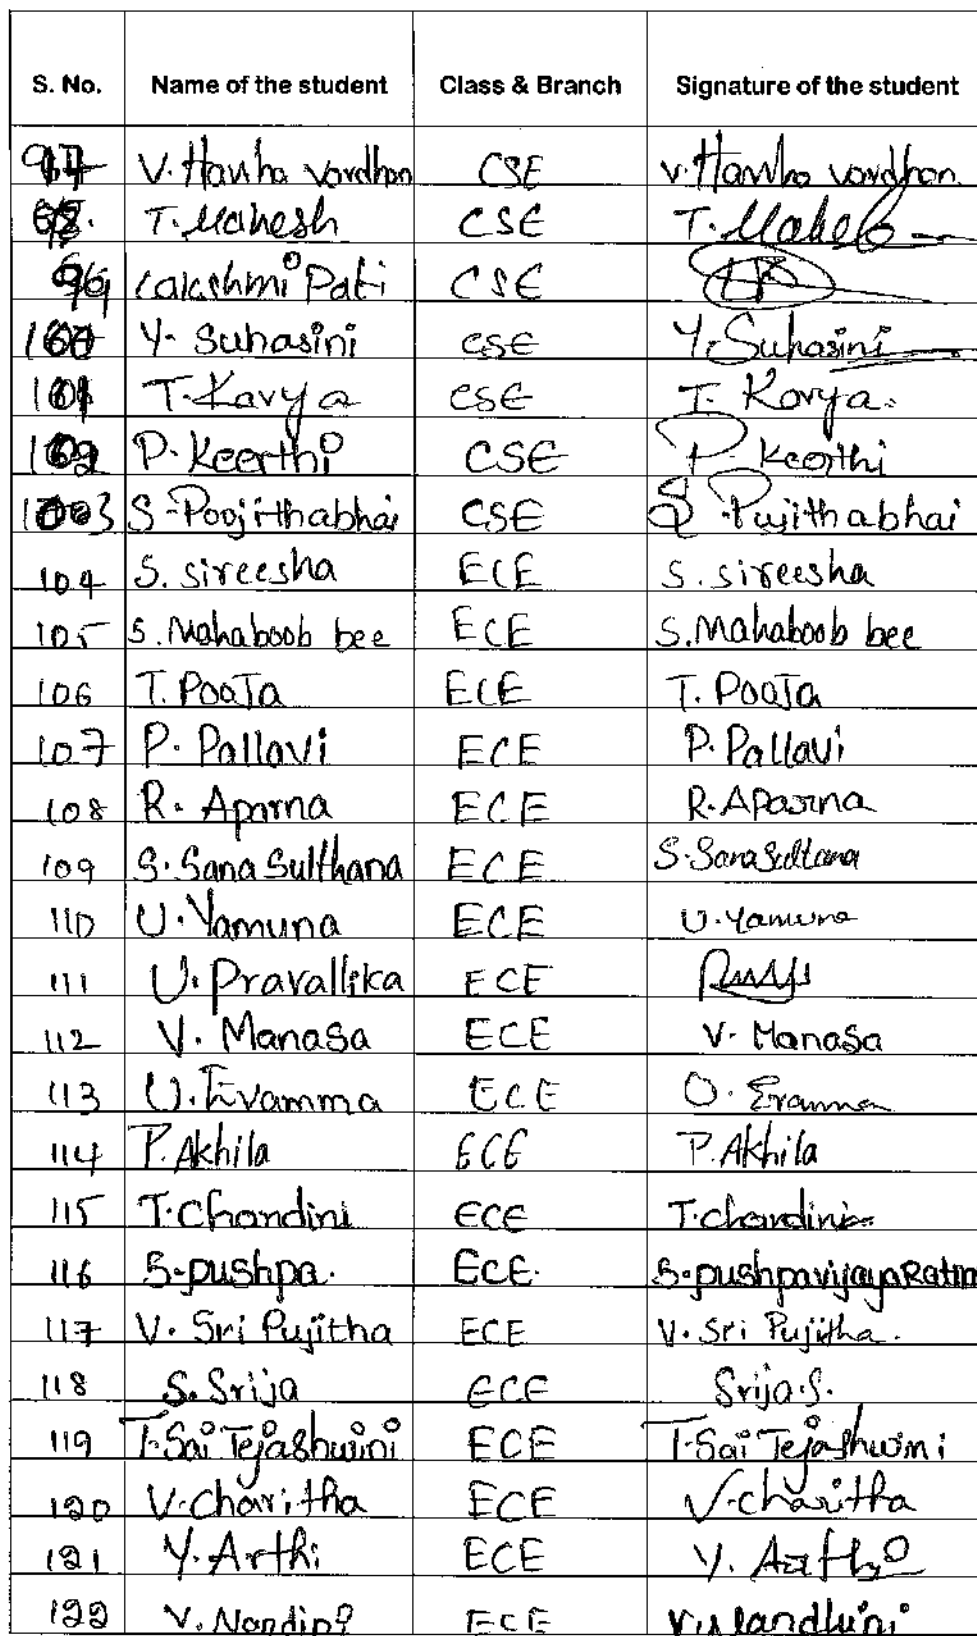 S. No. Name of the student Class & Branch Signature of the student
97 V. Harsha Vardhan CSE V. Harsha Vardhan
98. T. Mahesh CSE T. Mahesh
99 Lakshmi Pati CSE
100 Y. Suhasini CSE Y. Suhasini
101 T. Kavya CSE T. Kavya.
102 P. Keerthi CSE P. Keerthi
103 S. Poojithabhai CSE S. Pujithabhai
104 S. Sireesha ECE S. Sireesha
105 S. Mahaboob bee ECE S. Mahaboob bee
106 T. PooJa ECE T. PooJa
107 P. Pallavi ECE P. Pallavi
108 R. Aparna ECE R. Aparna
109 S. Sana Sulthana ECE S. Sana Sultana
110 U. Yamuna ECE U. Yamuna
111 U. Pravallika ECE
112 V. Manasa ECE V. Manasa
113 U. Evamma ECE U. Eramma
114 P. Akhila ECE P. Akhila
115 T. Chandini ECE T. Chandini
116 S. pushpa. ECE. S. pushpavijayaRatn
117 V. Sri Pujitha ECE V. Sri Pujitha.
118 S. Srija ECE Srija.S.
119 T. Sai Tejashwini ECE T. Sai Tejashwini
120 V. Charitha ECE V. Charitha
121 Y. Arthi ECE Y. Aarthi
122 V. Nandini ECE V. Nandhini